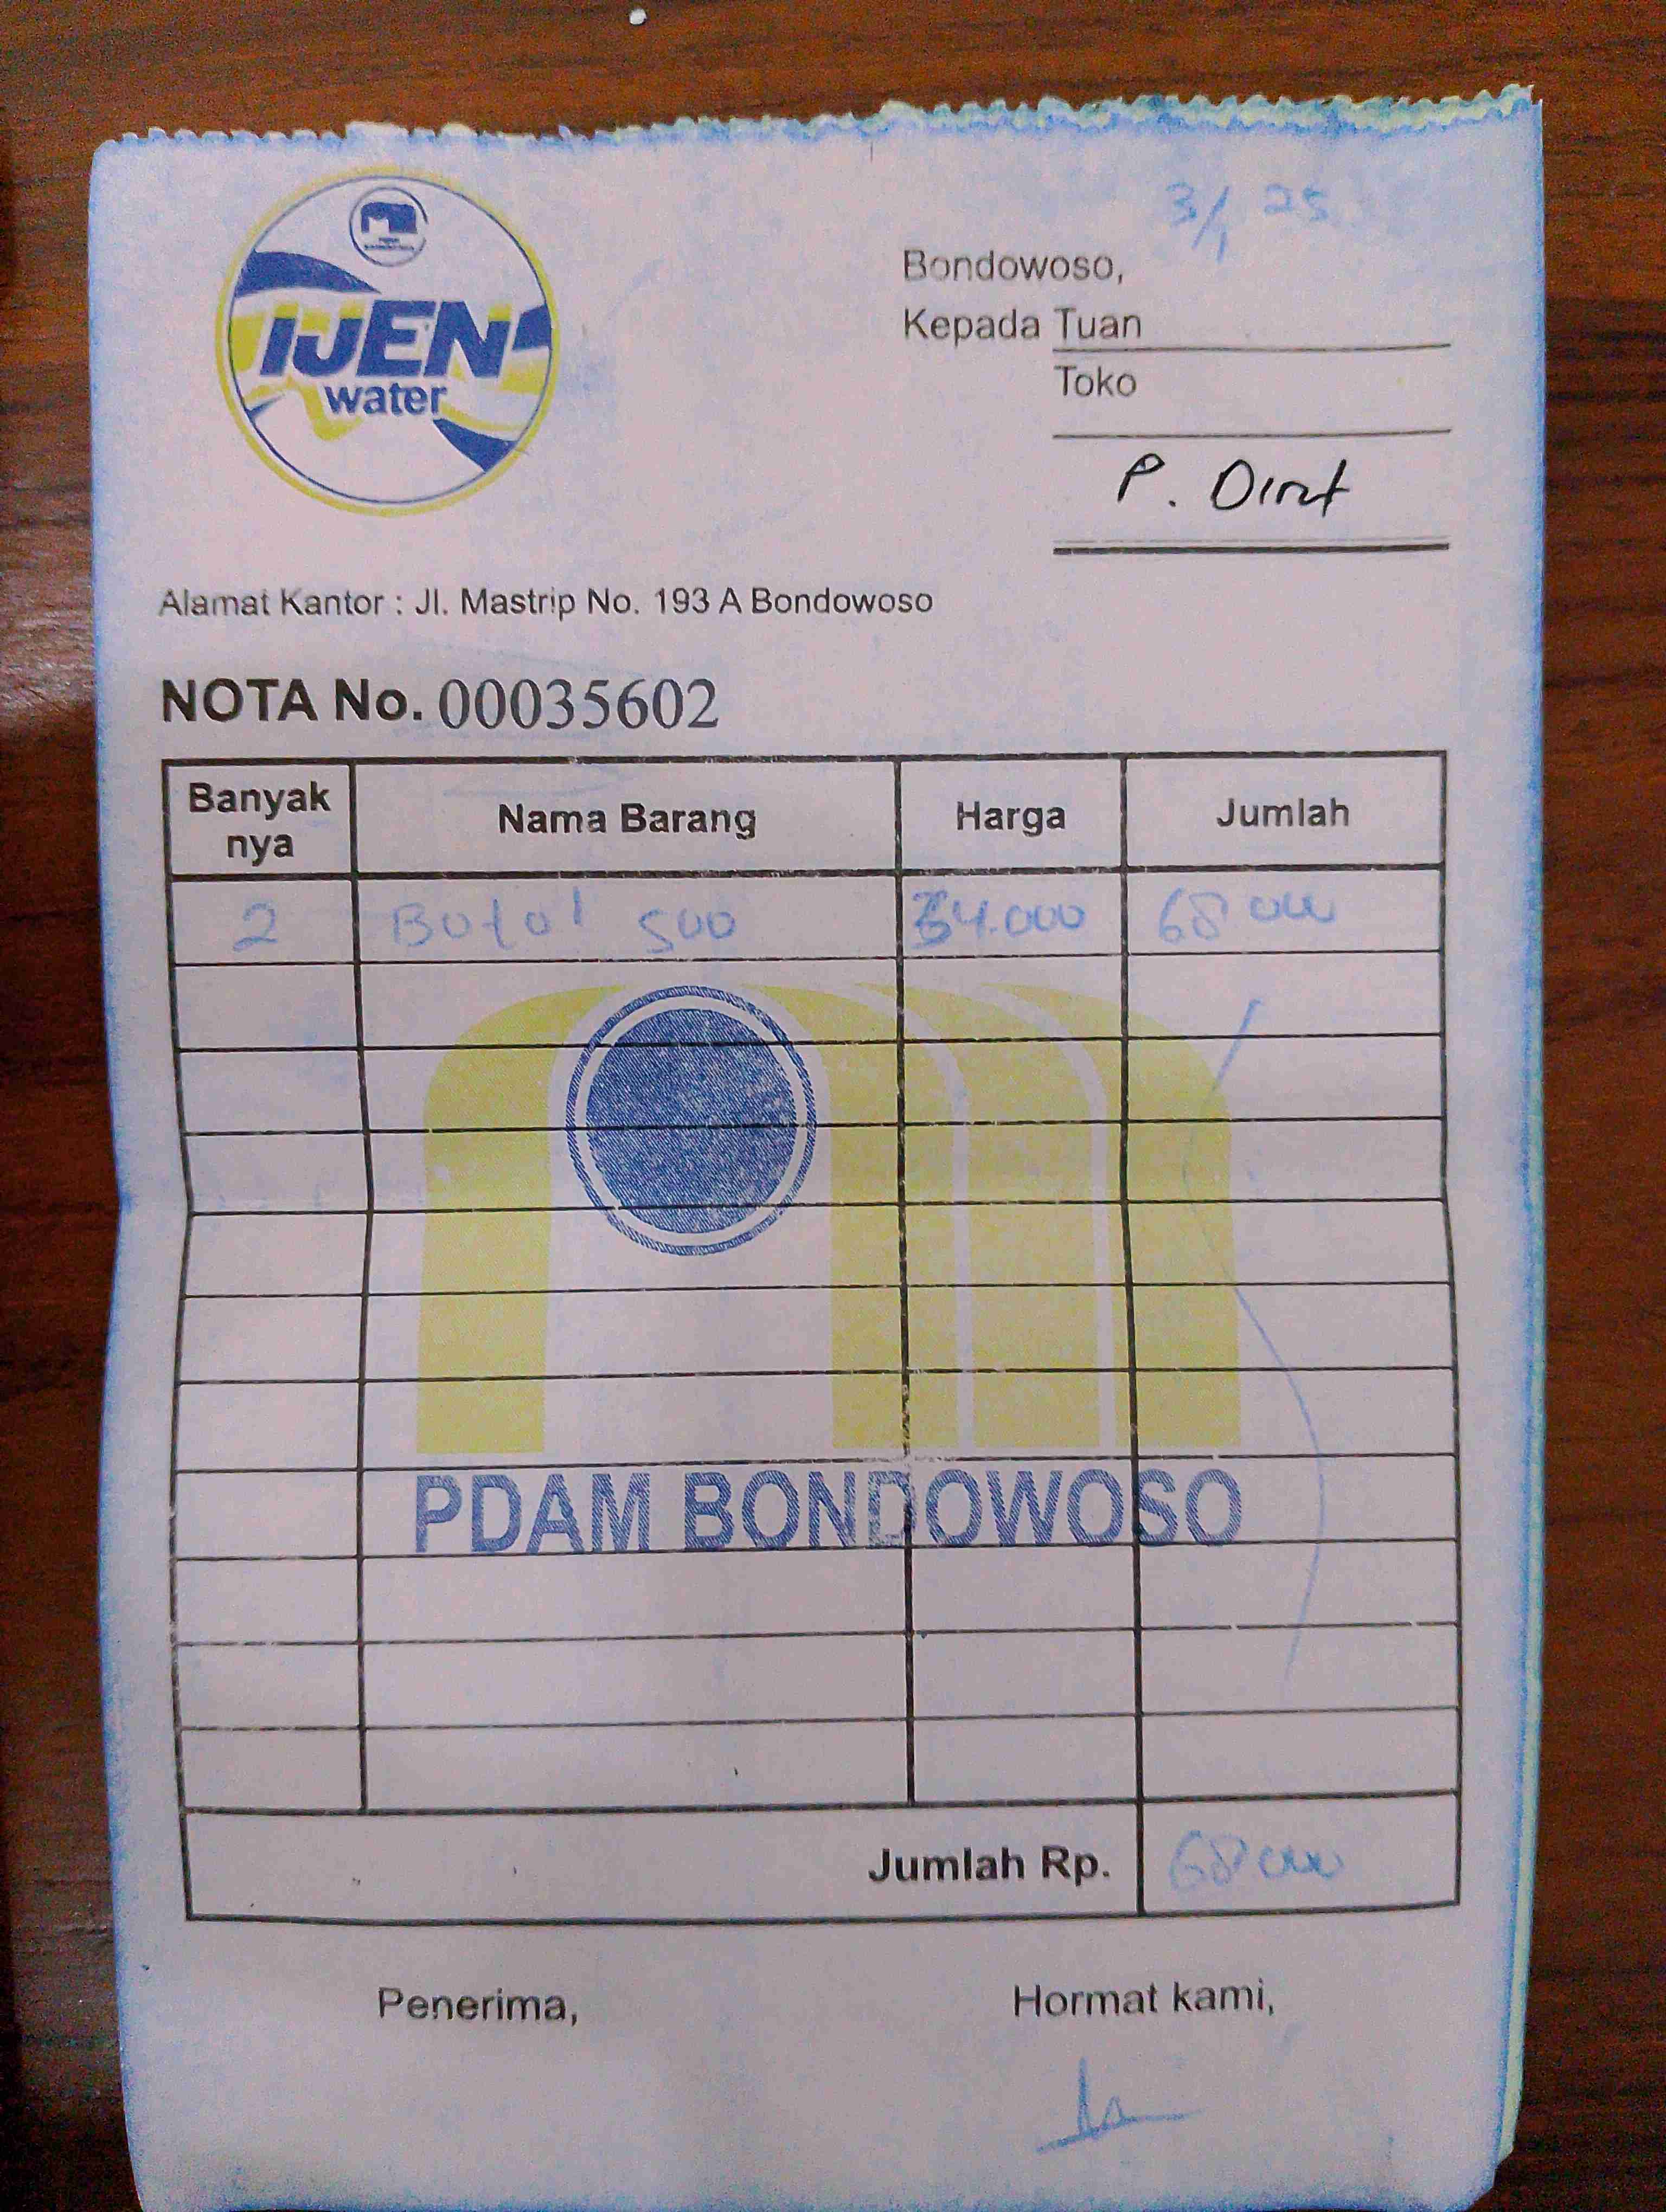 IJEN
water
3/1 25
Bondowoso,
Kepada Tuan
Toko
P. Dirut
Alamat Kantor : Jl. Mastrip No. 193 A Bondowoso
NOTA No. 00035602
Banyak nya Nama Barang Harga Jumlah
2 Botol 500 34.000 68 000
PDAM BONDOWOSO
Jumlah Rp. 68 000
Penerima, Hormat kami,